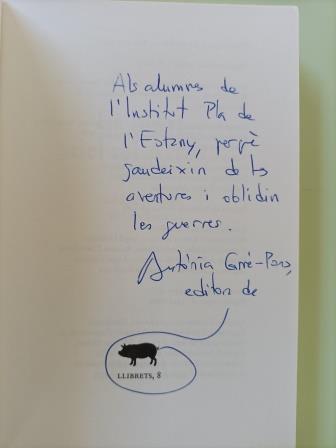 Als alumnes de
l'Institut Pla de
l'Estany, perquè
gaudeixin de les
aventures i oblidin
les guerres.
Antònia Carré-Pons,
editora de
LLIBRETS, 8